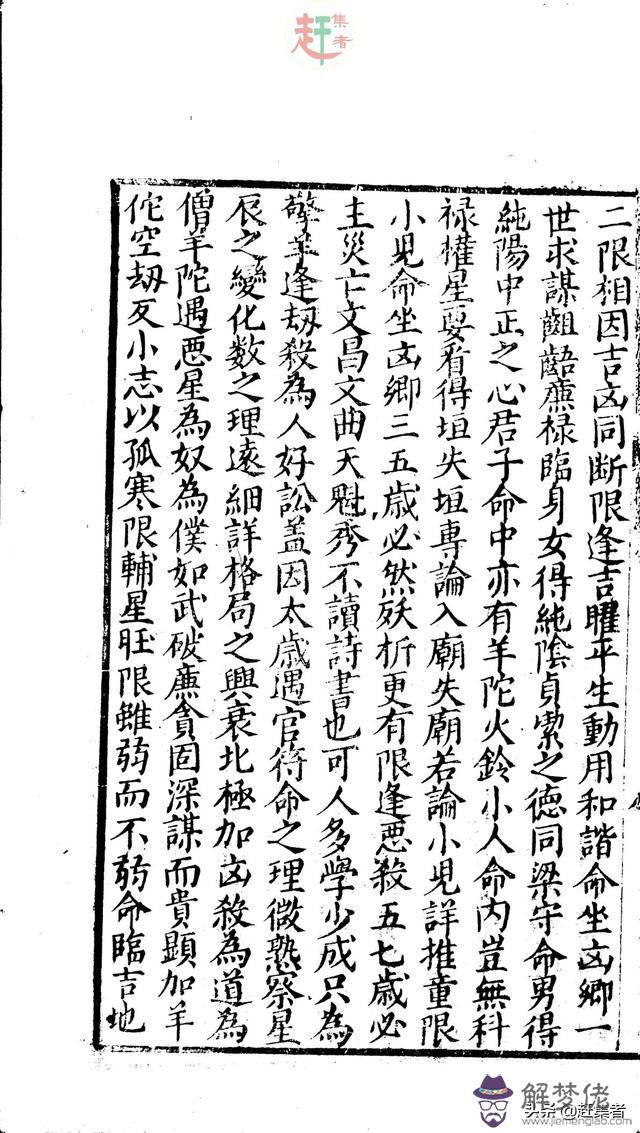 赶集者
二限相因吉凶同断限逢吉曜平生動用和諧命坐凶鄉一
世求謀齟齬廉禄臨身女得純陰貞潔之德同梁守命男得
純陽中正之心君子命中亦有羊陀火鈴小人命内豈無科
禄權星要看得垣失垣專論入廟失廟若論小兒詳推童限
小兒命坐凶鄉三五歲必然殀折更有限逢惡殺五七歲必
主災亡文昌文曲天魁秀不讀詩書也可人多學少成只為
擎羊逢劫殺為人好訟盖因太歲遇官符命之理微熟察星
辰之變化数之理遠細詳格局之興衰北極加凶殺為道為
僧羊陀遇惡星為奴為僕如武破廉貪固深謀而貴顯加羊
陀空劫反小志以孤寒限輔星旺限雖弱而不弱命臨吉地
解梦佬
www.jiemenglao.com
头条@赶集者